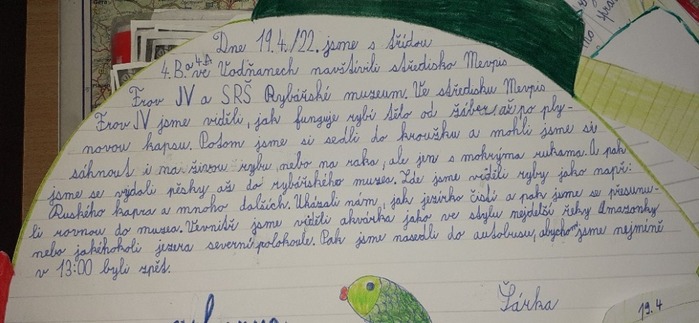 Dne 19.4./22. jsme s třídou
4.B. a 4A ve Vodňanech navštívili středisko Mevpis
Frov JV a SRŠ Rybářské muzeum. Ve středisku Mevpis
Frov JV jsme viděli, jak funguje rybí tělo od žáber až po ply-
novou kapsu. Potom jsme si sedli do kroužku a mohli jsme si
sáhnout i na živou rybu, nebo na raka, ale jen s mokrýma rukama. A pak
jsme se vydali pěšky až do rybářského muzea. Zde jsme viděli ryby jako např:
Ruského kapra a mnoho dalších. Ukázali nám, jak jezírko čistí a pak jsme se přesunu-
li rovnou do muzea. Vevnitř jsme viděli akvárka jako ve stylu nejdelší řeky Amazonky
nebo jakéhokoli jezera severní polokoule. Pak jsme nasedli do autobusu, abychom jsme nejméně
v 13:00 byli zpět.
Šárka
19.4